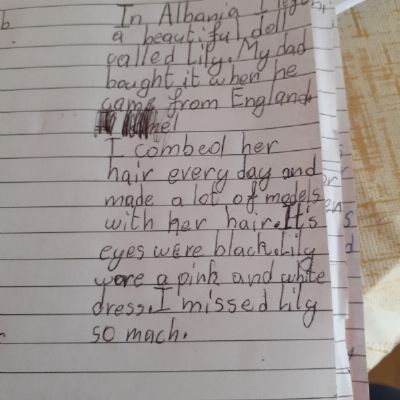 In Albania I
a beautiful doll
called Lily. My dad
bought it when he
came from England.
I combed her
hair every day and
made a lot of models
with her hair. It's
eyes were black. Lily
wore a pink and white
dress. I missed Lily
so mach.